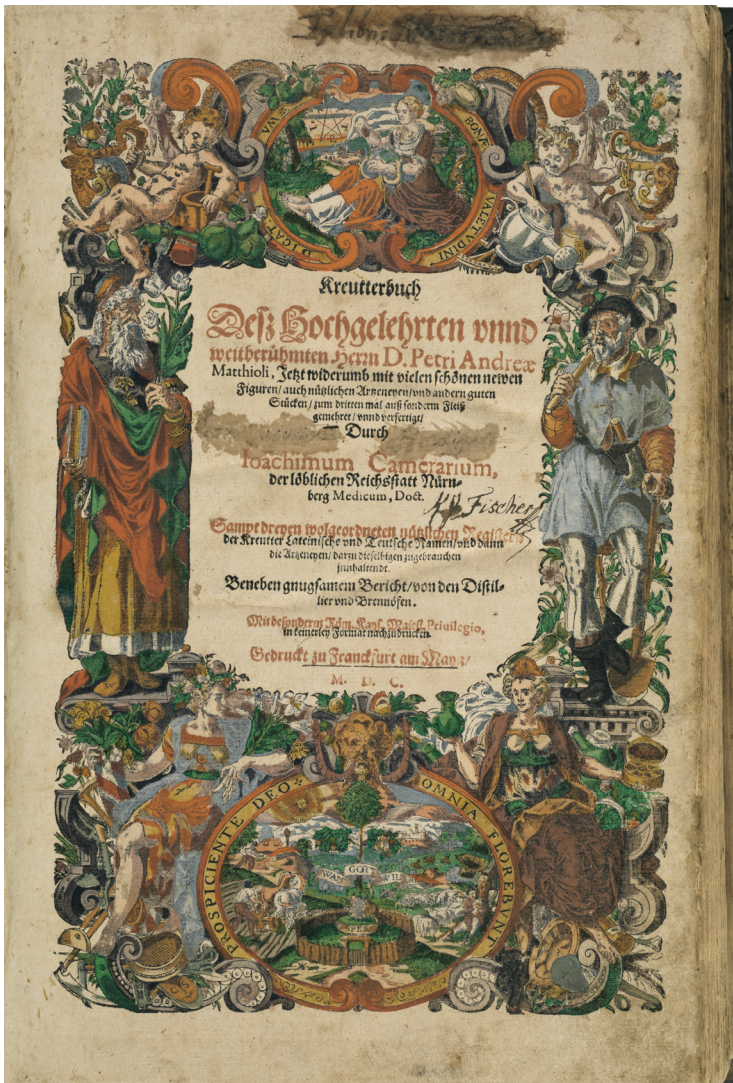 BONÆ
VALETVDINI
DICAT
VM
Kreutterbuch
Desz Hochgelehrten vnnd
weitberühmten Herrn D. Petri Andreæ
Matthioli, Jetzt widerumb mit vielen schönen newen
Figuren/ auch nützlichen Artzeneyen/ vnd andern guten
Stücken/ zum dritten mal auß sonderm Fleiß
gemehret/ vnnd verfertigt/
Durch
Ioachimum Camerarium,
der löblichen Reichsstatt Nürn-
berg Medicum, Doct.
Fischer
Sampt dreyen wolgeordneten nützlichen Registern
der Kreutter Lateinische vnd Teutsche Namen/ vnd dann
die Artzeneyen/ darzu dieselbigen zugebrauchen
innhaltendt.
Beneben gnugsamem Bericht/ von den Distil-
lier vnd Brennöfen.
Mit besonderm Röm. Kays. Maiest. Priuilegio,
in keinerley Format nachzudrucken.
Gedruckt zu Franckfurt am Mayn/
M. D. C.
PROSPICIENTE DEO
OMNIA FLOREBVNT
WAN GOT WIL
SPES